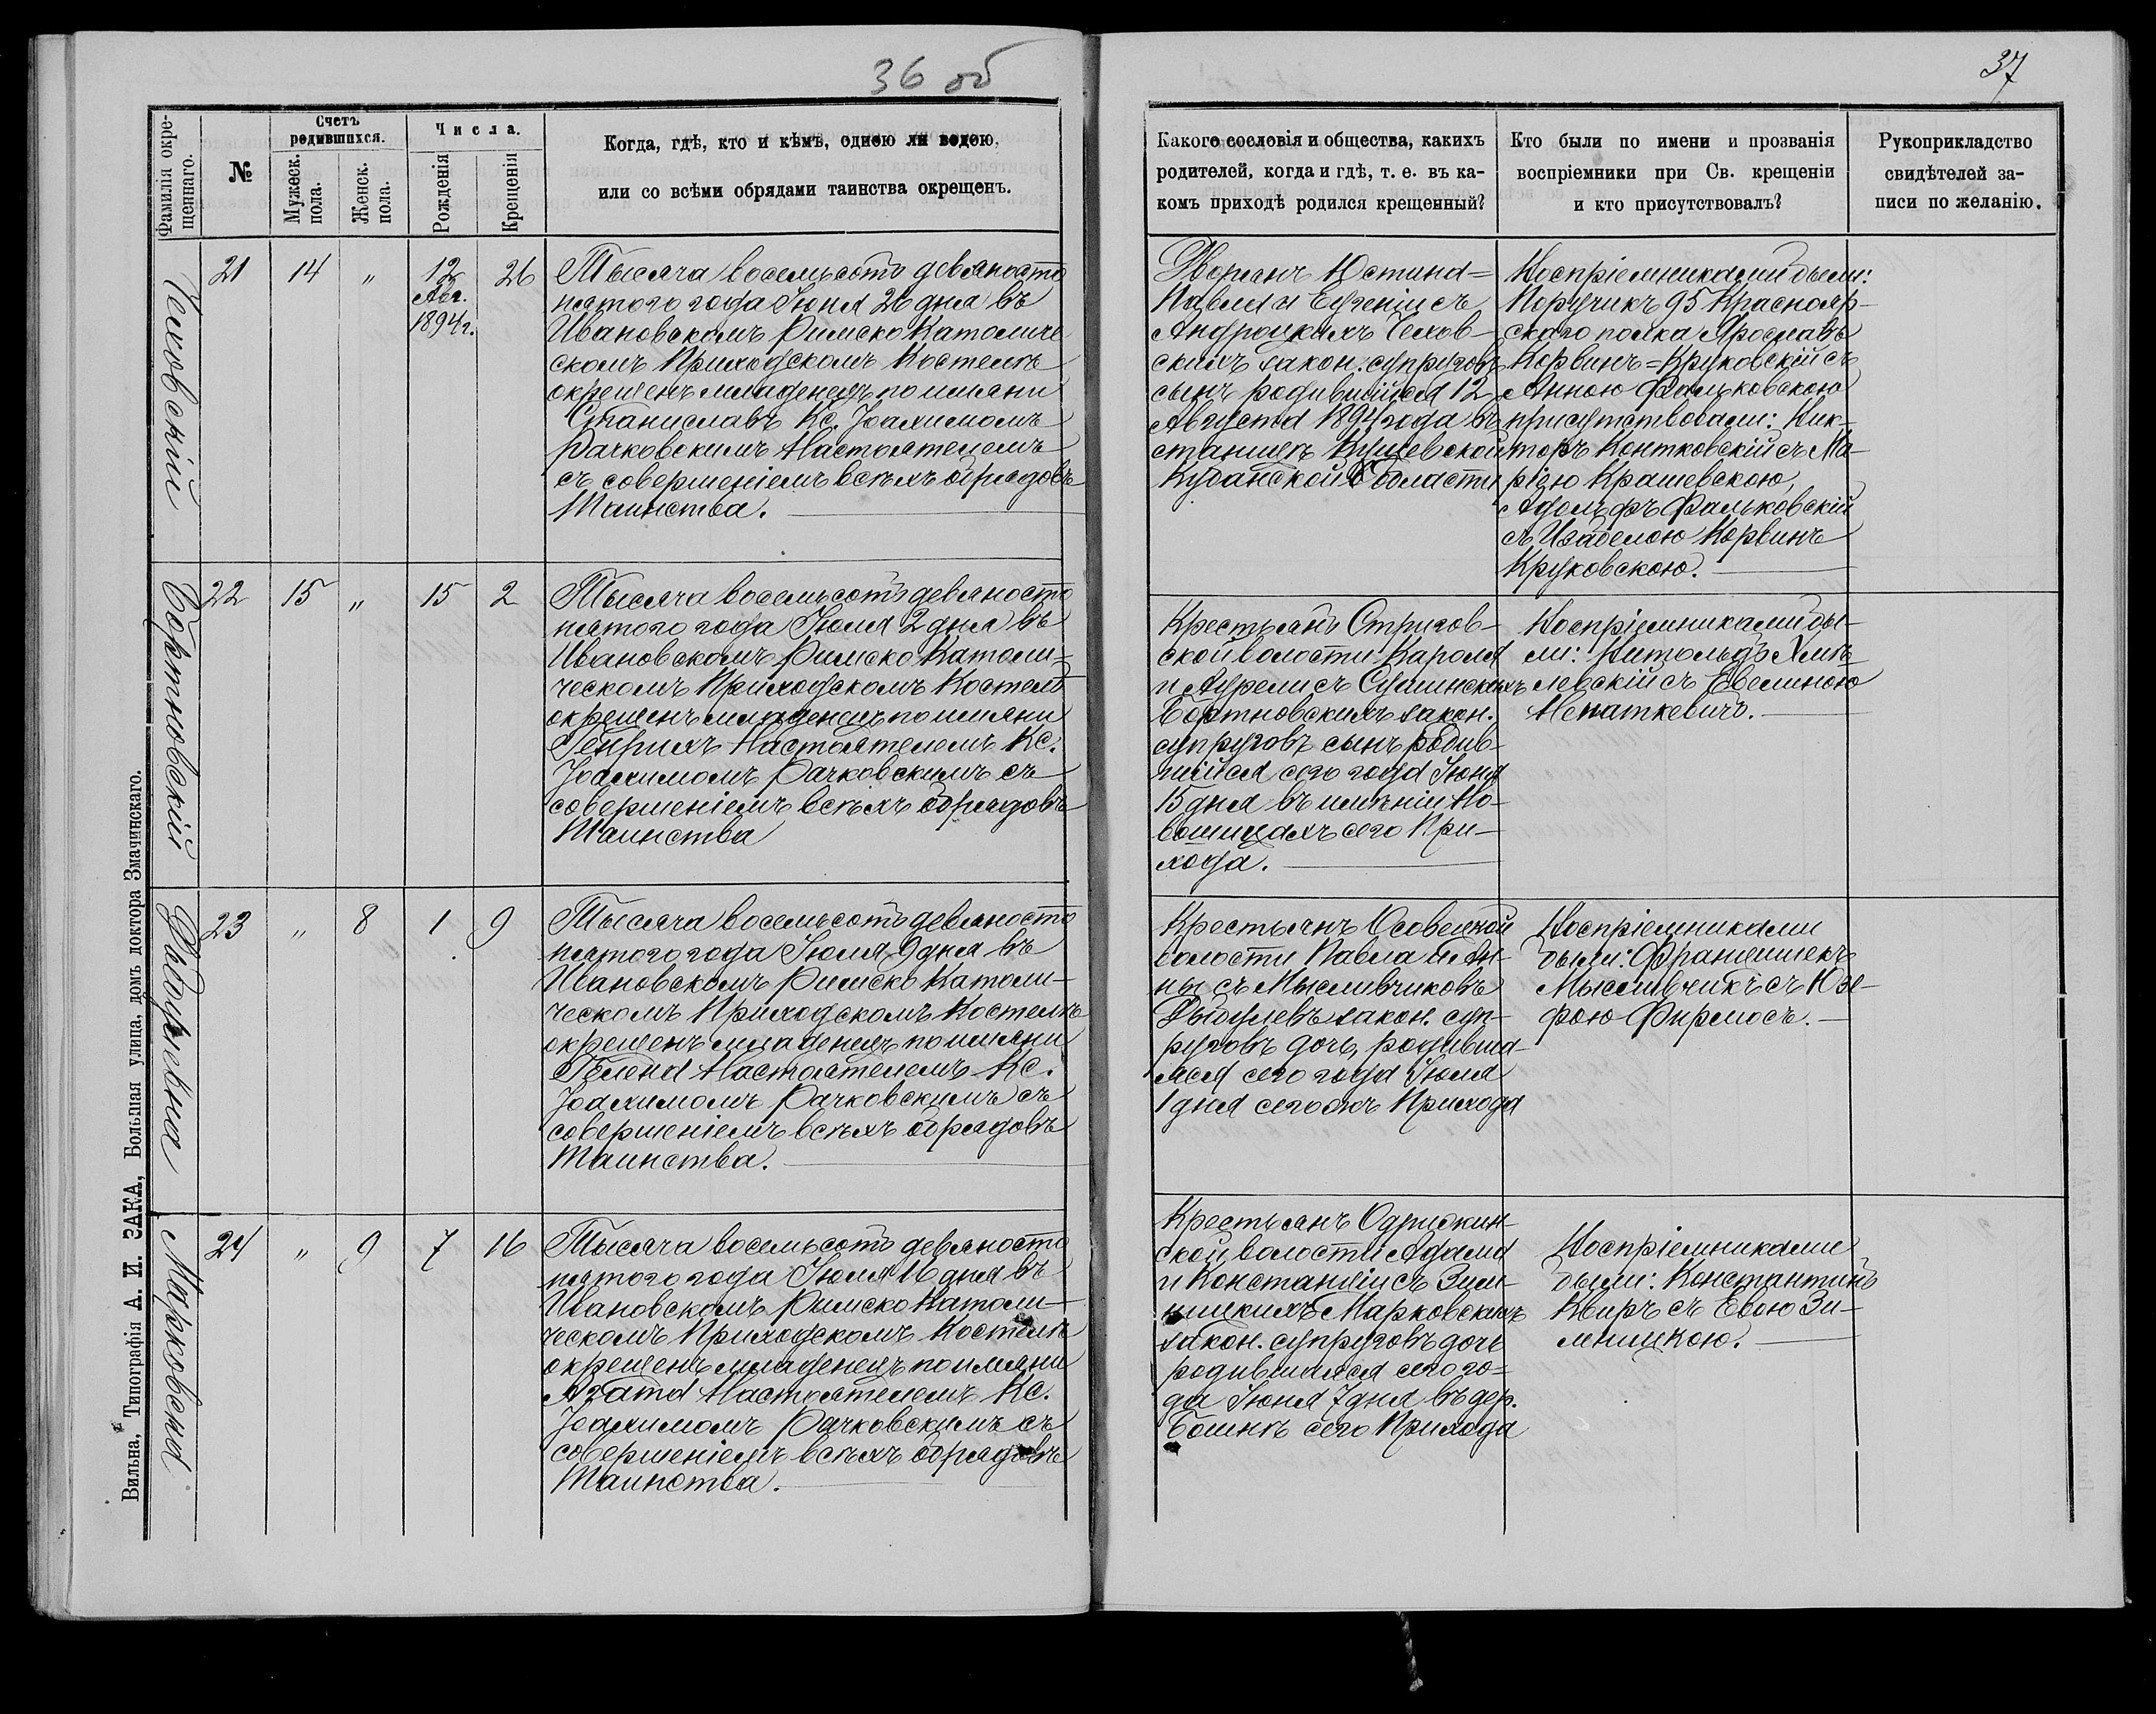 36 об
Фамилія окрещеннаго.
№
Счетъ родившихся.
Мужеск. пола.
Женск. пола.
Числа.
Рожденія
Крещенія
Когда, гдѣ, кто и кѣмъ, одною ли водою,
или со всѣми обрядами таинства окрещенъ.
21 14 " 12 Авг. 1894г. 26
Тысяча восемьсотъ девяносто
пятого года Іюня 26 дня въ
Ивановскомъ Римско Католиче
скомъ Приходскомъ Костелѣ
окрещенъ младенецъ по имяни
Станиславъ Кс. Іоахимомъ
Рачковскимъ Настоятелемъ
съ совершеніемъ всѣхъ обрядовъ
Таинства.
Бортновскій
22 15 " 15 2
Тысяча восемьсотъ девяносто
пятого года Іюля 2 дня въ
Ивановскомъ Римско Католи=
ческомъ Приходскомъ Костелѣ
окрещенъ младенецъ по имяни
Генрихъ Настоятелемъ Кс.
Іоахимомъ Рачковскимъ съ
совершеніемъ всѣхъ обрядовъ
Таинства
23 " 8 1 9
Тысяча восемьсотъ девяносто
пятого года Іюля 9 дня въ
Ивановскомъ Римско Католи-
ческомъ Приходскомъ Костелѣ
окрещенъ младенецъ по имяни
Гелена Настоятелемъ Кс.
Іоахимомъ Рачковскимъ съ
совершеніемъ всѣхъ обрядовъ
Таинства.
Марковска
24 " 9 7 16
Тысяча восемьсотъ девяносто
пятого года Іюля 16 дня въ
Ивановскомъ Римско Католи-
ческомъ Приходскомъ Костелѣ
окрещенъ младенецъ по имяни
Агата Настоятелемъ Кс.
Іоахимомъ Рачковскимъ съ
совершеніемъ всѣхъ обрядовъ
Таинства.
Вильна, Типографія А. И. ЗАКА, Большая улица, домъ доктора Змачинскаго.
37
Какого сословія и общества, какихъ
родителей, когда и гдѣ, т. е. въ ка-
комъ приходѣ родился крещенный?
Кто были по имени и прозванія
воспріемники при Св. крещеніи
и кто присутствовалъ?
Рукоприкладство
свидѣтелей за-
писи по желанію.
Дворянъ Юстина=
Павла и Евгеніи съ
скихъ закон. супруговъ
сынъ родившійся 12
Августа 1894 года въ
станицѣ Кущевской
Кубанской Области
Воспріемниками были:
Поручикъ 95 Краснояр-
скаго полка Ярославъ
Корвинъ=Круковскій съ
Анною Фальковскою
присутствовали: Вик-
торъ Контковскій съ Ма-
ріею Крашевскою,
Адольфъ Фальковскій
съ Изабелою Корвинъ
Круковскою.
Крестьянъ Стригов-
ской волости Кароля
и Аурели съ
Бортновскихъ закон.
супруговъ сынъ родив-
шійся сего года Іюня
15 дня въ имѣніи Но-
сего При-
хода.
Воспріемниками бы-
ли: Витольдъ Хмѣ-
левскій съ Евелиною
Игнаткевичъ.
Крестьянъ Осовецкой
волости Павла и Ан-
ны съ Мысливчиковъ
закон. суп-
руговъ дочь, родивша-
яся сего года Іюля
1 дня сегожъ Прихода
Воспріемниками
были: Франтишекъ
Мысливчикъ съ Юзе-
фою Фирмосъ.
Крестьянъ Одрижин-
ской волости Адама
и Констанціи съ Зим-
ницкихъ Марковскихъ
закон. супруговъ дочь
родившаяся сего го-
да Іюня 7 дня въ дер.
сего Прихода
Воспріемниками
были: Константинъ
съ Евою Зи-
мницкою.